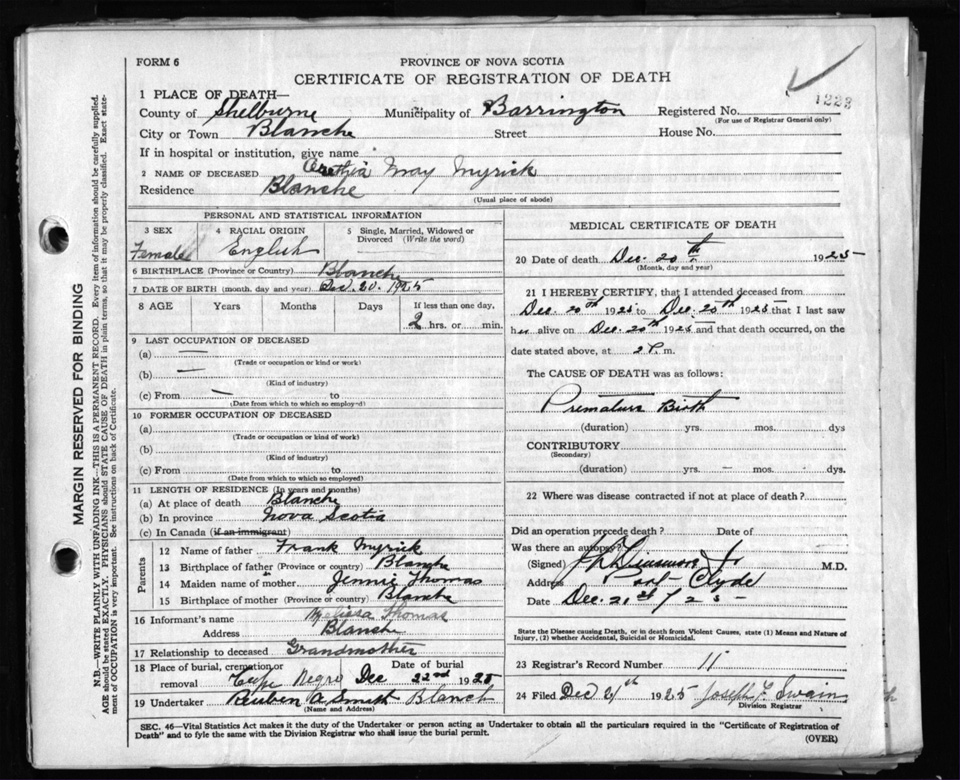 FORM 6
PROVINCE OF NOVA SCOTIA
CERTIFICATE OF REGISTRATION OF DEATH
1 PLACE OF DEATH—
1223
County of Shelburne Municipality of Barrington Registered No.
(For use of Registrar General only)
City or Town Blanche Street House No.
If in hospital or institution, give name
2 NAME OF DECEASED May Myrick
Residence Blanche
(Usual place of abode)
PERSONAL AND STATISTICAL INFORMATION
3 SEX 4 RACIAL ORIGIN 5 Single, Married, Widowed or
Divorced (Write the word)
Female English
6 BIRTHPLACE (Province or Country) Blanche
7 DATE OF BIRTH (month, day and year) Dec. 20. 1925
8 AGE Years Months Days If less than one day,
2 hrs. or min.
9 LAST OCCUPATION OF DECEASED
(a) —
(Trade or occupation or kind of work)
(b) —
(Kind of industry)
(c) From — to
(Date from which to which so employed)
10 FORMER OCCUPATION OF DECEASED
(a)
(Trade or occupation or kind of work)
(b)
(Kind of industry)
(c) From to
(Date from which to which so employed)
11 LENGTH OF RESIDENCE (In years and months)
(a) At place of death Blanche
(b) In province Nova Scotia
(c) In Canada (if an immigrant)
Parents
12 Name of father Frank Myrick
13 Birthplace of father (Province or country) Blanche
14 Maiden name of mother Jennie Thomas
15 Birthplace of mother (Province or country) Blanche
16 Informant's name Melissa Thomas
Address Blanche
17 Relationship to deceased Grandmother
18 Place of burial, cremation or removal Cape Negro Date of burial Dec 22nd 1925
19 Undertaker Reuben A Smith Blanch
(Name and Address)
MEDICAL CERTIFICATE OF DEATH
20 Date of death Dec. 20th 1925
(Month, day and year)
21 I HEREBY CERTIFY, that I attended deceased from
Dec. 20th 1925 to Dec. 20th 1925 that I last saw
her alive on Dec. 20th 1925 and that death occurred, on the
date stated above, at 2 P. m.
The CAUSE OF DEATH was as follows:
Premature Birth
(duration) yrs. mos. dys
CONTRIBUTORY
(Secondary)
(duration) yrs. — mos. dys.
22 Where was disease contracted if not at place of death?
Did an operation precede death? Date of
Was there an autopsy?
(Signed) Jr M.D.
Address Port Clyde
Date Dec. 21st / 25
State the Disease causing Death, or in death from Violent Causes, state (1) Means and Nature of
Injury, (2) whether Accidental, Suicidal or Homicidal.
23 Registrar's Record Number 11
24 Filed Dec 1925 Joseph Swain
Division Registrar
SEC. 46—Vital Statistics Act makes it the duty of the Undertaker or person acting as Undertaker to obtain all the particulars required in the "Certificate of Registration of
Death" and to fyle the same with the Division Registrar who shall issue the burial permit.
(OVER)
MARGIN RESERVED FOR BINDING
N.B.—WRITE PLAINLY WITH UNFADING INK—THIS IS A PERMANENT RECORD. Every item of information should be carefully supplied.
AGE should be stated EXACTLY. PHYSICIANS should STATE CAUSE OF DEATH in plain terms, so that it may be properly classified. Exact state-
ment of OCCUPATION is very important. See instructions on back of Certificate.